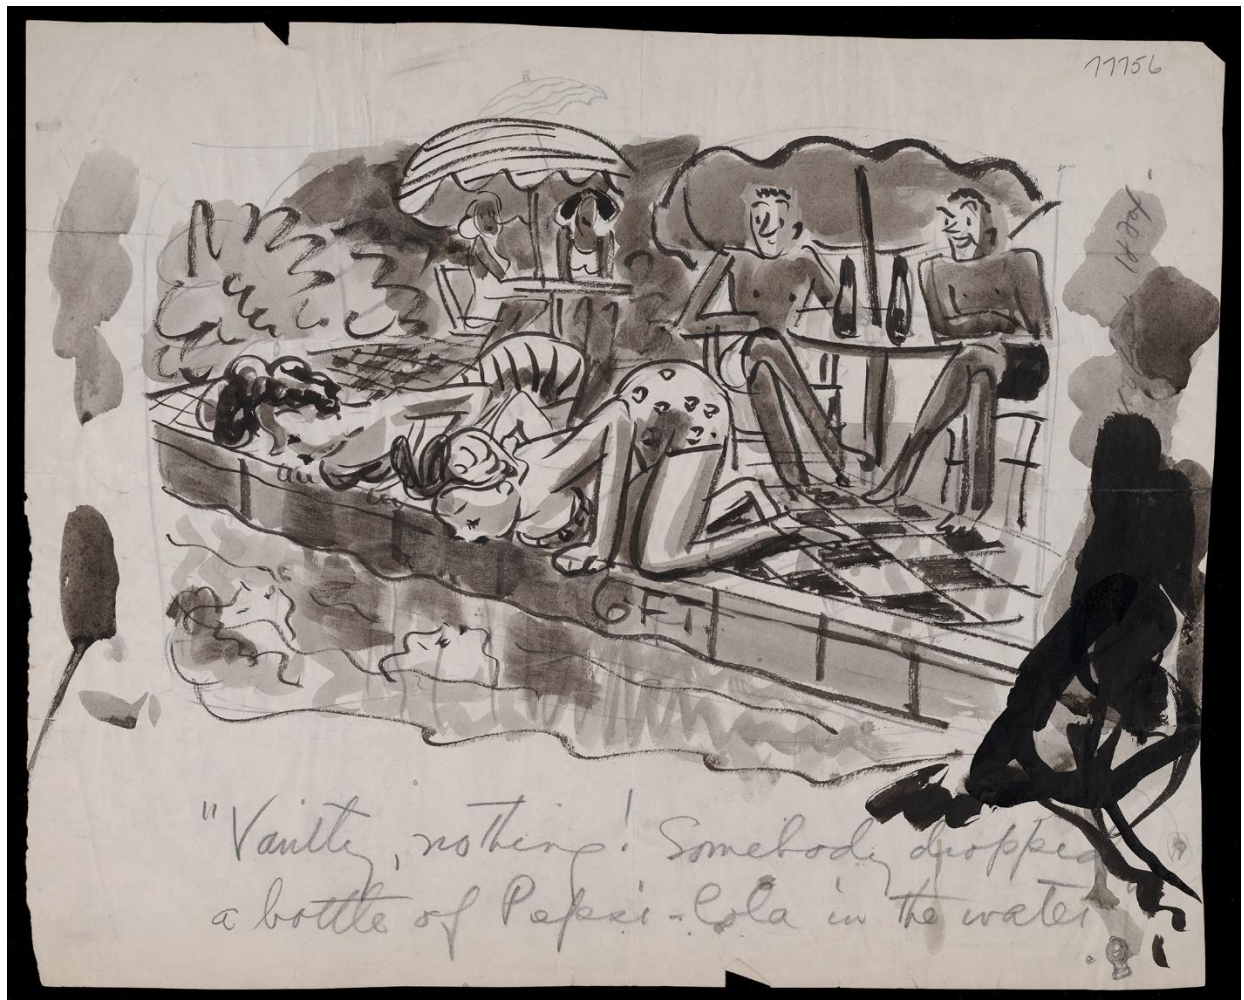 77756
6 FT
"Vanity, nothing! Somebody dropped
a bottle of Pepsi-Cola in the water"